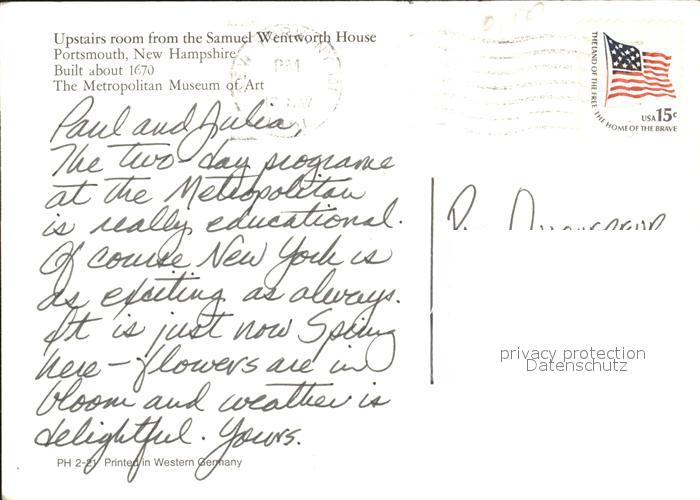 Upstairs room from the Samuel Wentworth House
Portsmouth, New Hampshire
Built about 1670
The Metropolitan Museum of Art
Paul and Julia,
The two-day programe
at the Metropolitan
is really educational.
Of course New York is
as exciting as always.
It is just now Spring
here – flowers are in
bloom and weather is
delightful. Yours.
PH 2-21 Printed in Western Germany
PM
THE LAND OF THE FREE
THE HOME OF THE BRAVE
USA 15c
privacy protection
Datenschutz